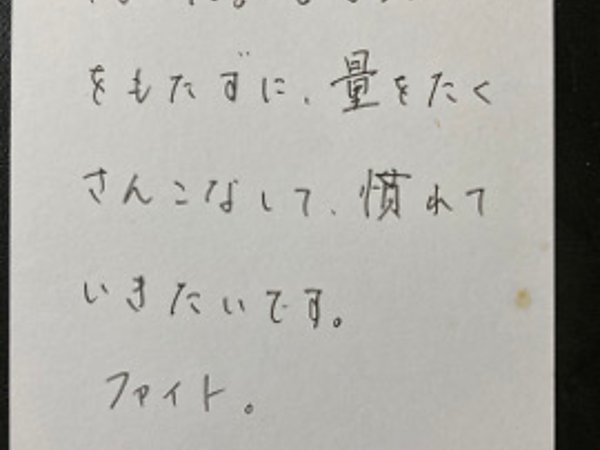 をもたずに、量をたく
さんこなして、慣れて
いきたいです。
ファイト。